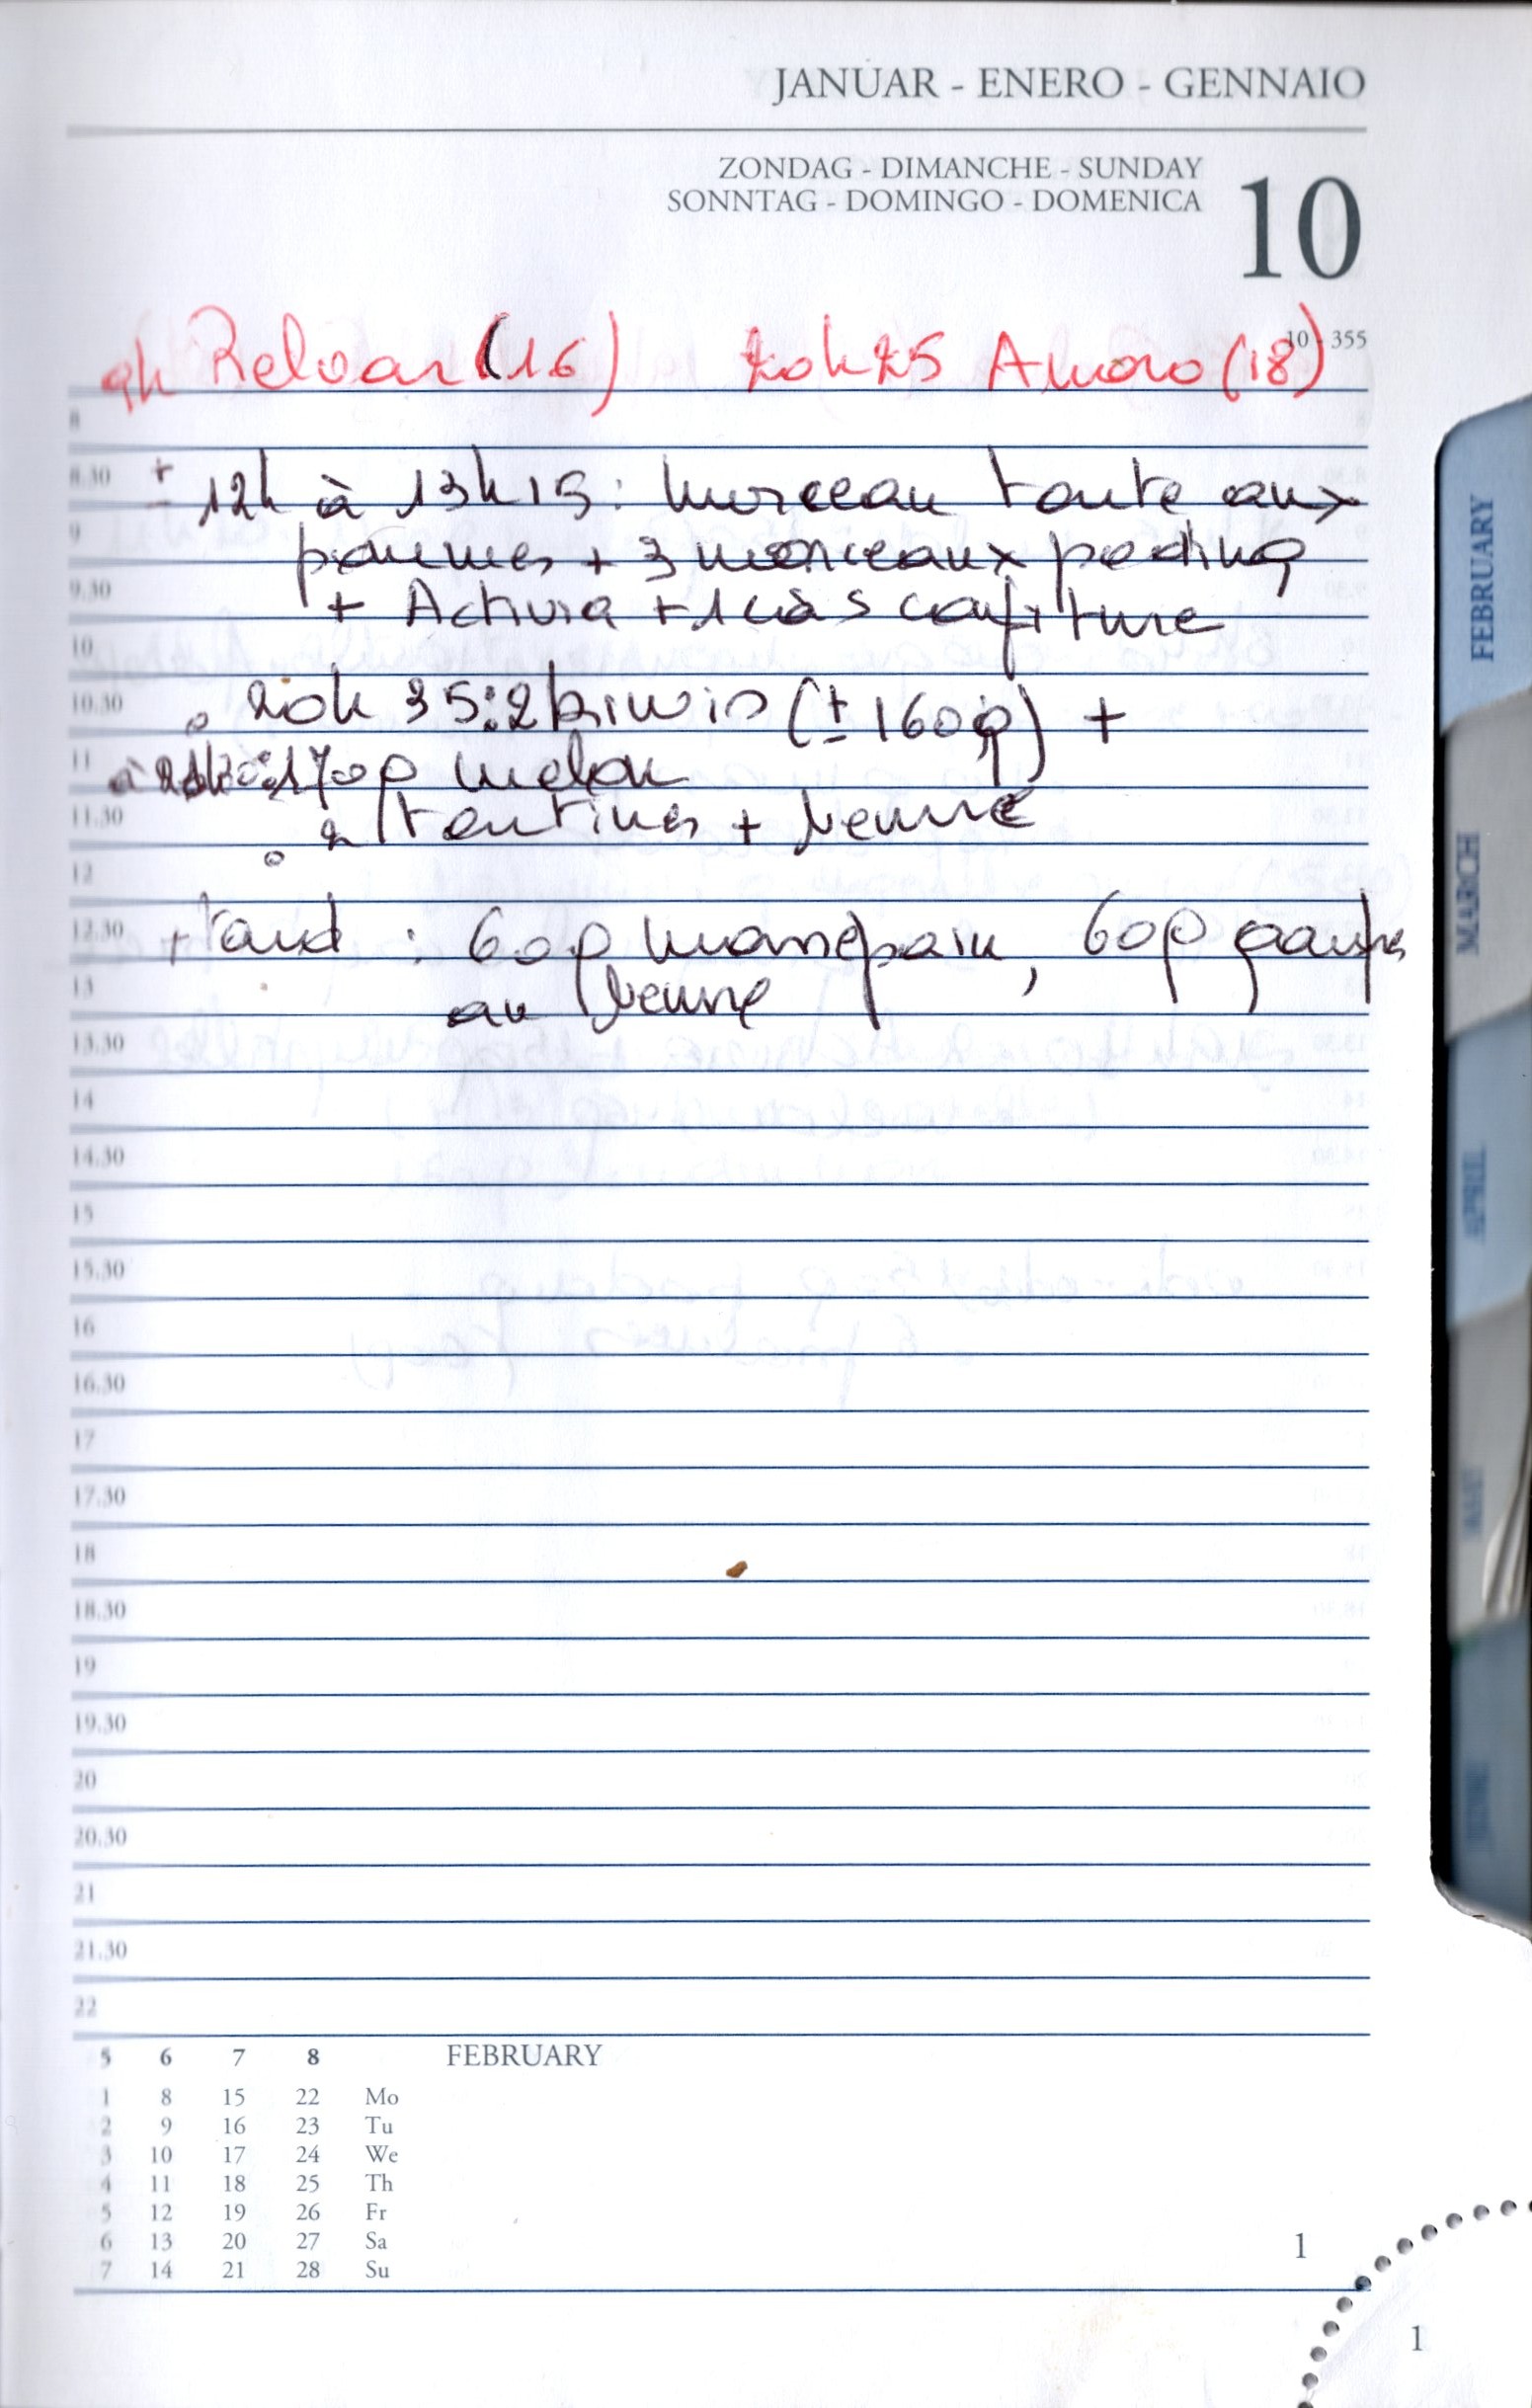 JANUAR - ENERO - GENNAIO
ZONDAG - DIMANCHE - SUNDAY
SONNTAG - DOMINGO - DOMENICA
10
10 - 355
9h Reloar (16) 20h25 Amoro (18)
8
8.30
± 12h à 13h15 : morceau tarte aux
9
pommes + 3 morceaux poding
9.30
+ Activia + 1 càs confiture
10
10.30
20h 35 : 2 kiwis (± 160g) +
11
à : 170g melon
11.30
2 tartines + beurre
12
12.30
+ tard : 60g massepain, 60g gaufres
13
au beurre
13.30
14
14.30
15
15.30
16
16.30
17
17.30
18
18.30
19
19.30
20
20.30
21
21.30
22
5 6 7 8 FEBRUARY
1 8 15 22 Mo
2 9 16 23 Tu
3 10 17 24 We
4 11 18 25 Th
5 12 19 26 Fr
6 13 20 27 Sa
7 14 21 28 Su
1
1
FEBRUARY
MARCH
APRIL